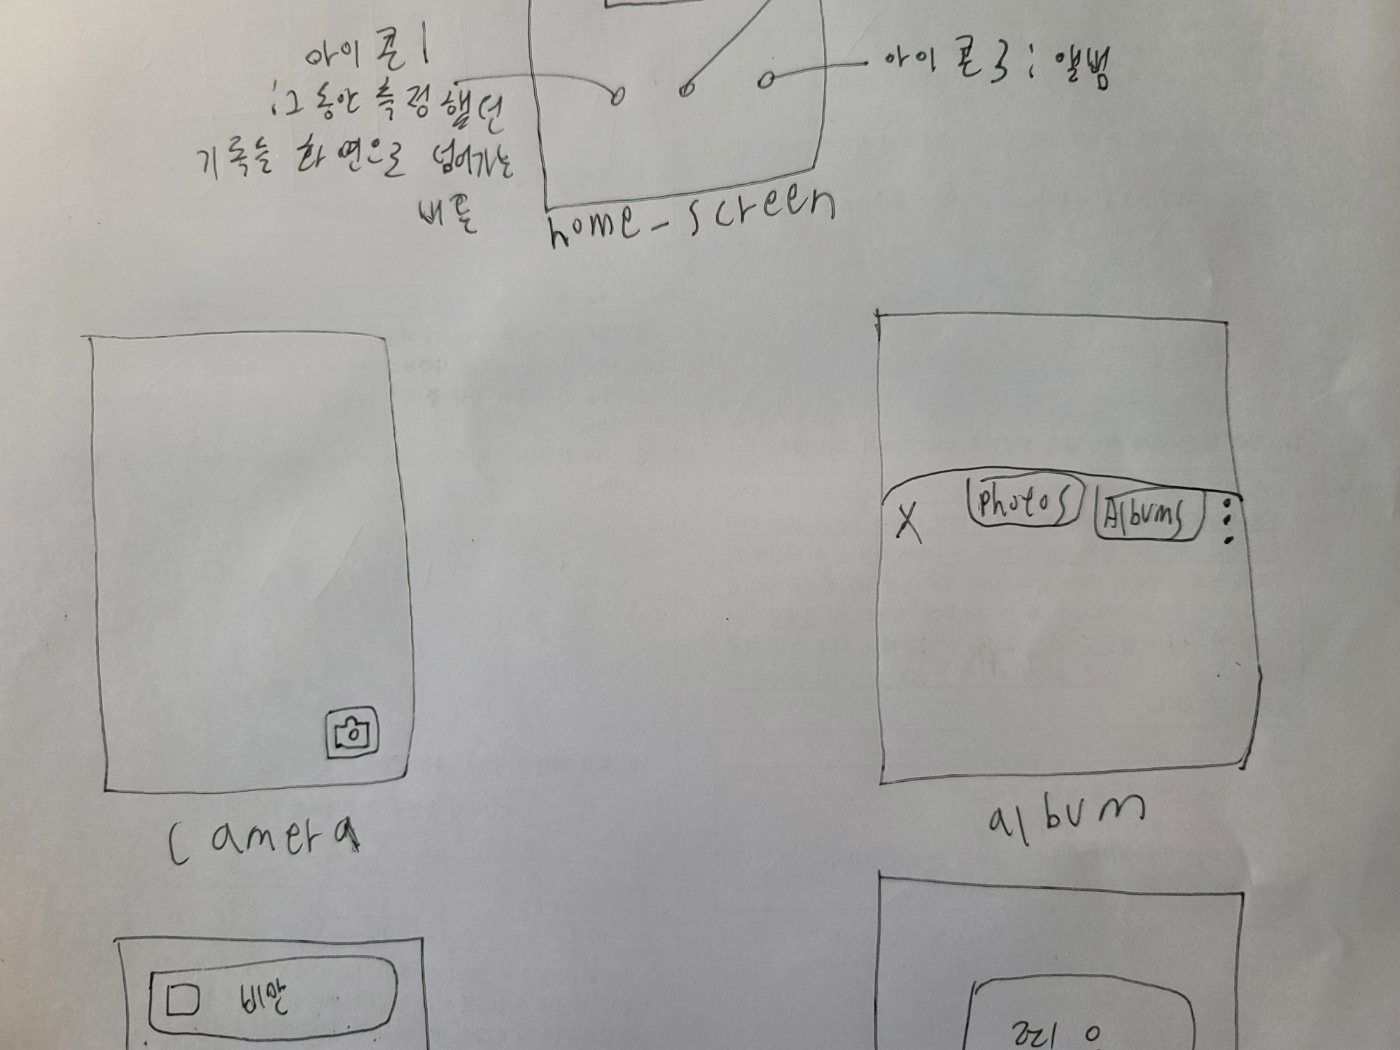 아이콘 1
: 그동안 측정했던
기록들 화면으로 넘어가는
버튼
아이콘 3 : 앨범
home-screen
camera
X photos Albums
album
비만